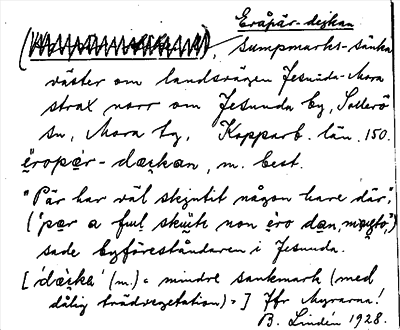 Eråpär-dejkan
sumpmarks-sänka
väster om landsvägen Jesunda-Mora
strax norr om Jesunda by, Sollerö
sn, Mora tg, Kopparb. län. 150.
èropæ̀r-dæskan, m. best.
"Pär har väl skjutit någon hare där",
("pær a ful non èro dan,
sade byföreståndaren i Jesunda.
[ 'dæska' (m.) = mindre sankmark (med
dålig trädvegetation) = ] Jfr Myrarna!
B. Lindén 1928.